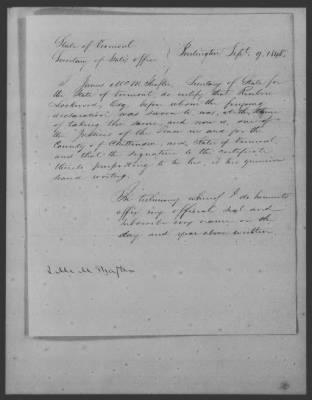 State of Vermont
Secretary of State's office } Burlington Sept. 9, 1848.
I James McM. Shafter, Secretary of State for
the State of Vermont, do certify that
Lockwood, Esq. before whom the foregoing
declaration was sworn to was, at the time
of taking the same, and now is, one of
the Justices of the Peace in and for the
County of Chittenden, and State of Vermont,
and that the signature to the certificate
thereto purporting to be his, is his genuine
hand writing.
In testimony whereof I do hereunto
affix my official seal and
subscribe my name on the
day and year above written.
J. McM. Shafter